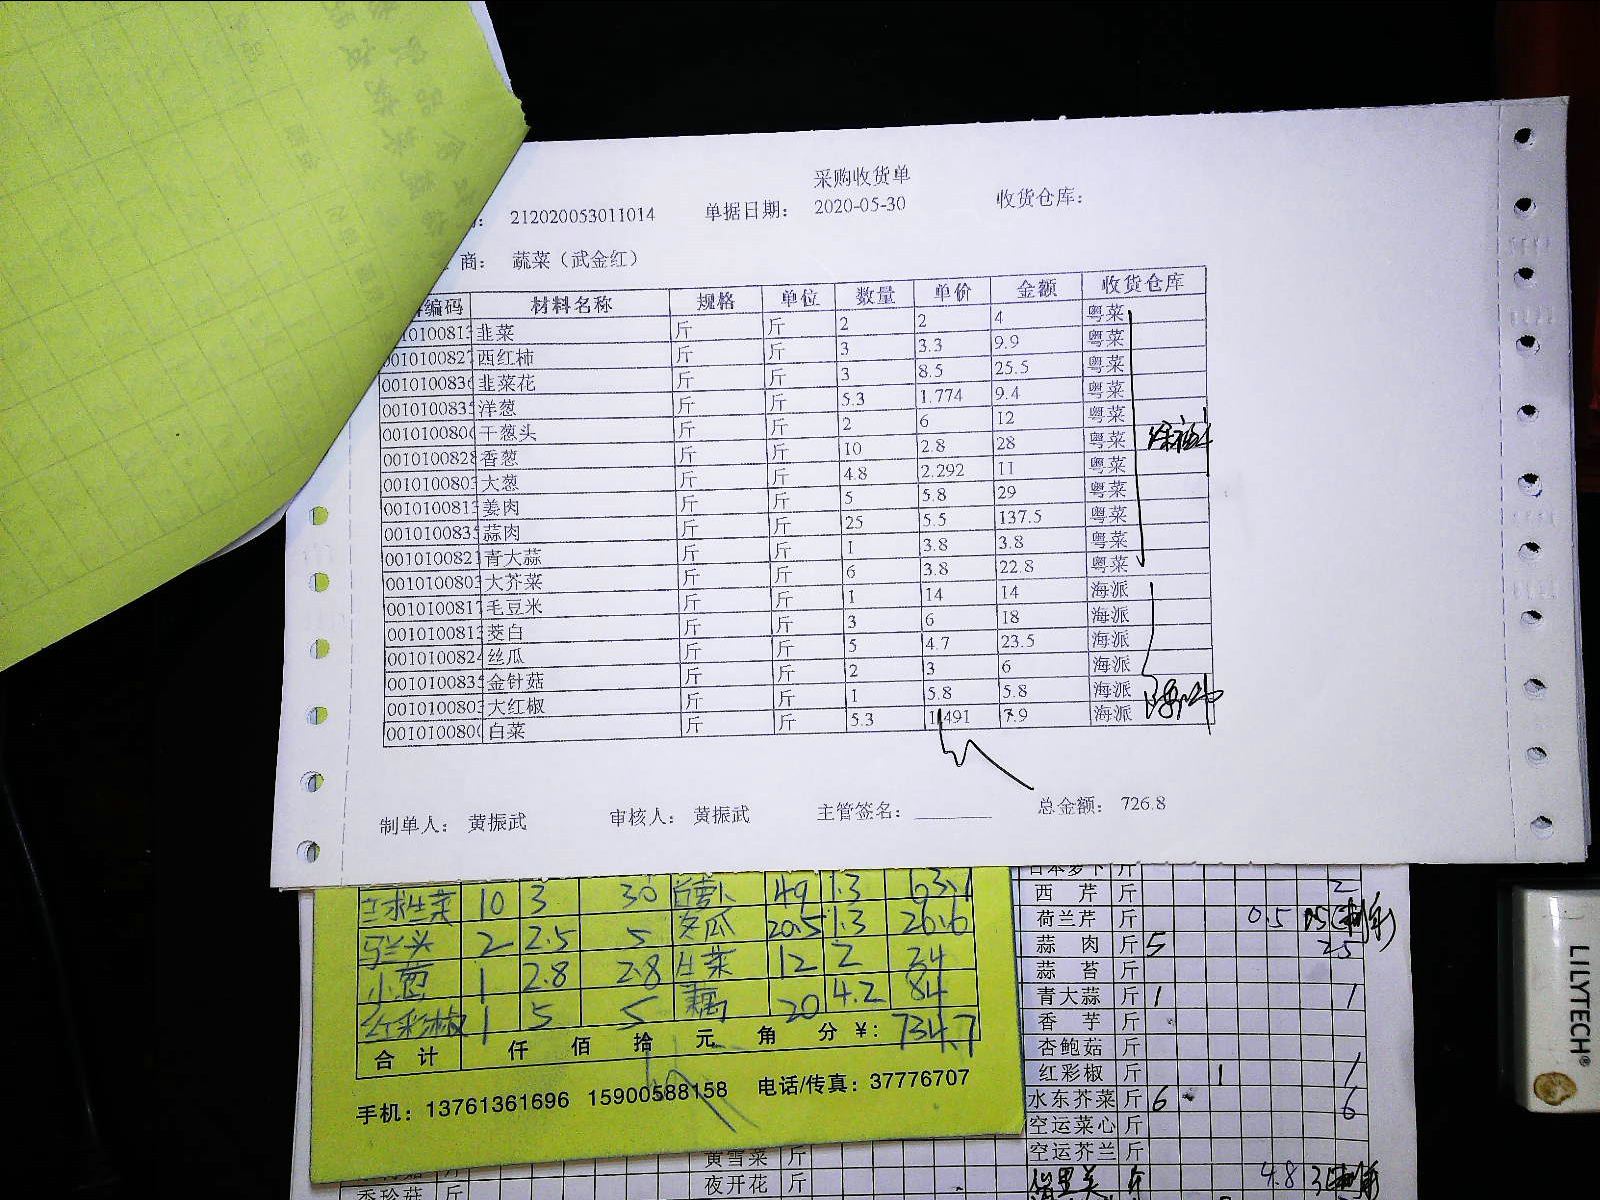 采购收货单
212020053011014 单据日期： 2020-05-30 收货仓库：
商： 蔬菜（武金红）
编码 材料名称 规格 单位 数量 单价 金额 收货仓库
韭菜 斤 斤 2 2 4 粤菜
西红柿 斤 斤 3 3.3 9.9 粤菜
韭菜花 斤 斤 3 8.5 25.5 粤菜
洋葱 斤 斤 5.3 1.774 9.4 粤菜
干葱头 斤 斤 2 6 12 粤菜
香葱 斤 斤 10 2.8 28 粤菜
大葱 斤 斤 4.8 2.292 11 粤菜
姜肉 斤 斤 5 5.8 29 粤菜
蒜肉 斤 斤 25 5.5 137.5 粤菜
青大蒜 斤 斤 1 3.8 3.8 粤菜
大芥菜 斤 斤 6 3.8 22.8 粤菜
毛豆米 斤 斤 1 14 14 海派
茭白 斤 斤 3 6 18 海派
丝瓜 斤 斤 5 4.7 23.5 海派
金针菇 斤 斤 2 3 6 海派
大红椒 斤 斤 1 5.8 5.8 海派
白菜 斤 斤 5.3 1.491 7.9 海派
制单人： 黄振武 审核人： 黄振武 主管签名： 总金额： 726.8
生菜 10 3 30 49 1.3
马兰头 2 2.5 5 冬瓜 20.5 1.3 26.6
小葱 1 2.8 2.8 生菜 12 2 24
红彩椒 1 5 5 藕 20 4.2 84
合计 仟 佰 拾 元 角 分 ¥： 734.7
手机：13761361696 15900588158 电话/传真：37776707
日本萝卜 斤
西芹 斤 2
荷兰芹 斤 0.5
蒜肉 斤 5 25
蒜苔 斤
青大蒜 斤 1 1
香芋 斤
杏鲍菇 斤
红彩椒 斤 1 1
水东芥菜 斤 6 6
空运菜心 斤
空运芥兰 斤
4.8
黄雪菜 斤
夜开花 斤
秀珍菇 斤
LILYTECH®